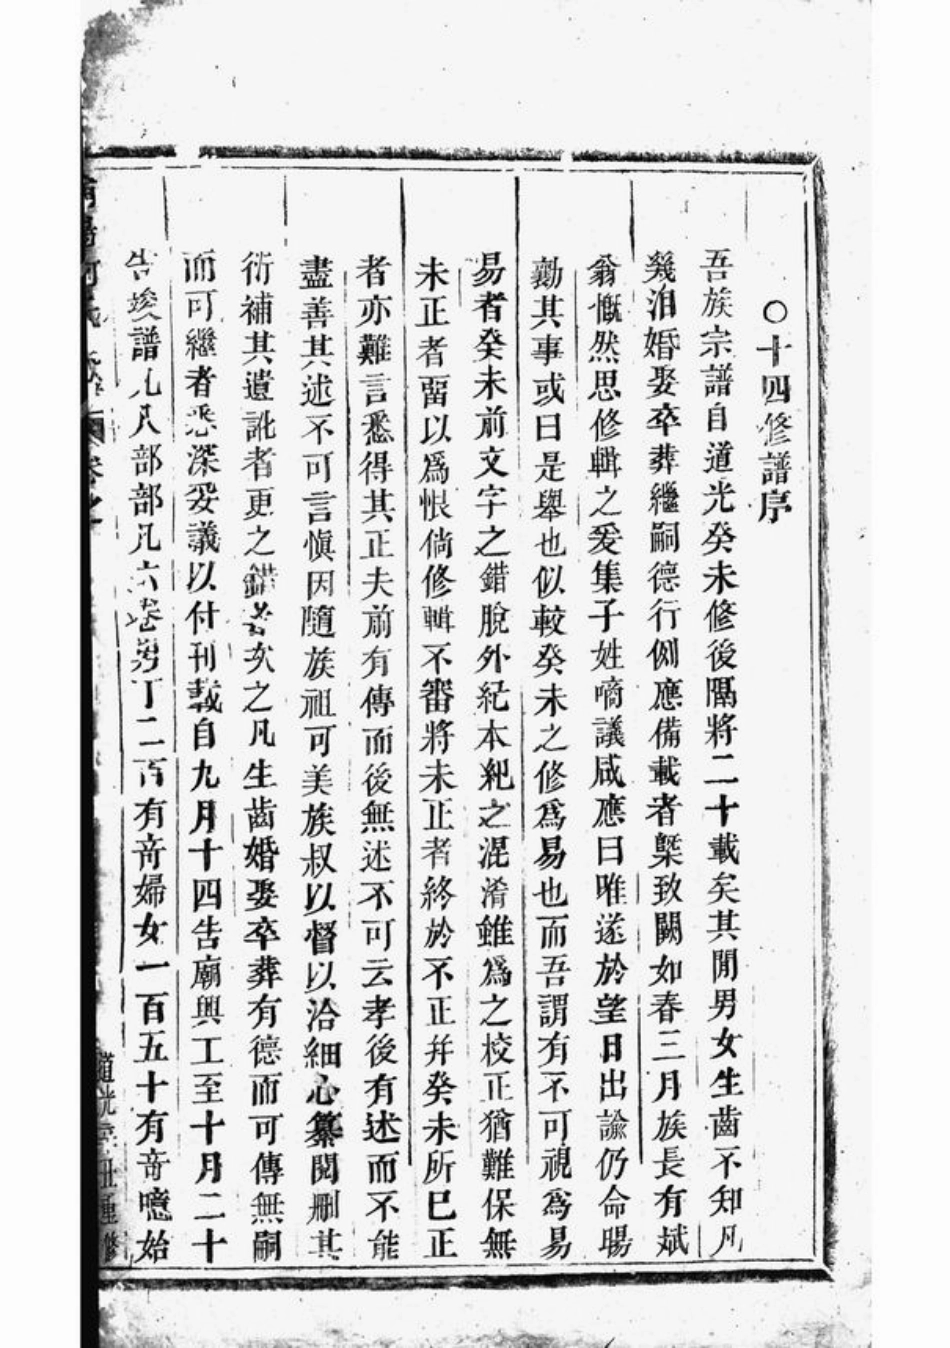 ○十四修譜序
吾族宗譜自道光癸未修後隔將二十載矣其閒男女生齒不知凡
幾洎婚娶卒葬繼嗣德行例應備載者槩致闕如春三月族長有斌
翁慨然思修輯之爰集子姓啇議咸應曰唯遂於望日出諭仍命暘
勷其事或曰是舉也似較癸未之修爲易也而吾謂有不可視爲易
易者癸未前文字之錯脫外紀本紀之混淆雖爲之校正猶難保無
未正者畱以爲恨倘修輯不審將未正者終於不正幷癸未所已正
者亦難言悉得其正夫前有傳而後無述不可云孝後有述而不能
盡善其述不可言愼因隨族祖可美族叔以督以洽細心纂閱刪其
衍補其遺訛者更之錯者次之凡生齒婚娶卒葬有德而可傳無嗣
而可繼者悉深妥議以付刊載自九月十四告廟興工至十月二十
告竣譜凡八部部凡六卷男丁二百有奇婦女一百五十有奇噫始
道光辛丑重修